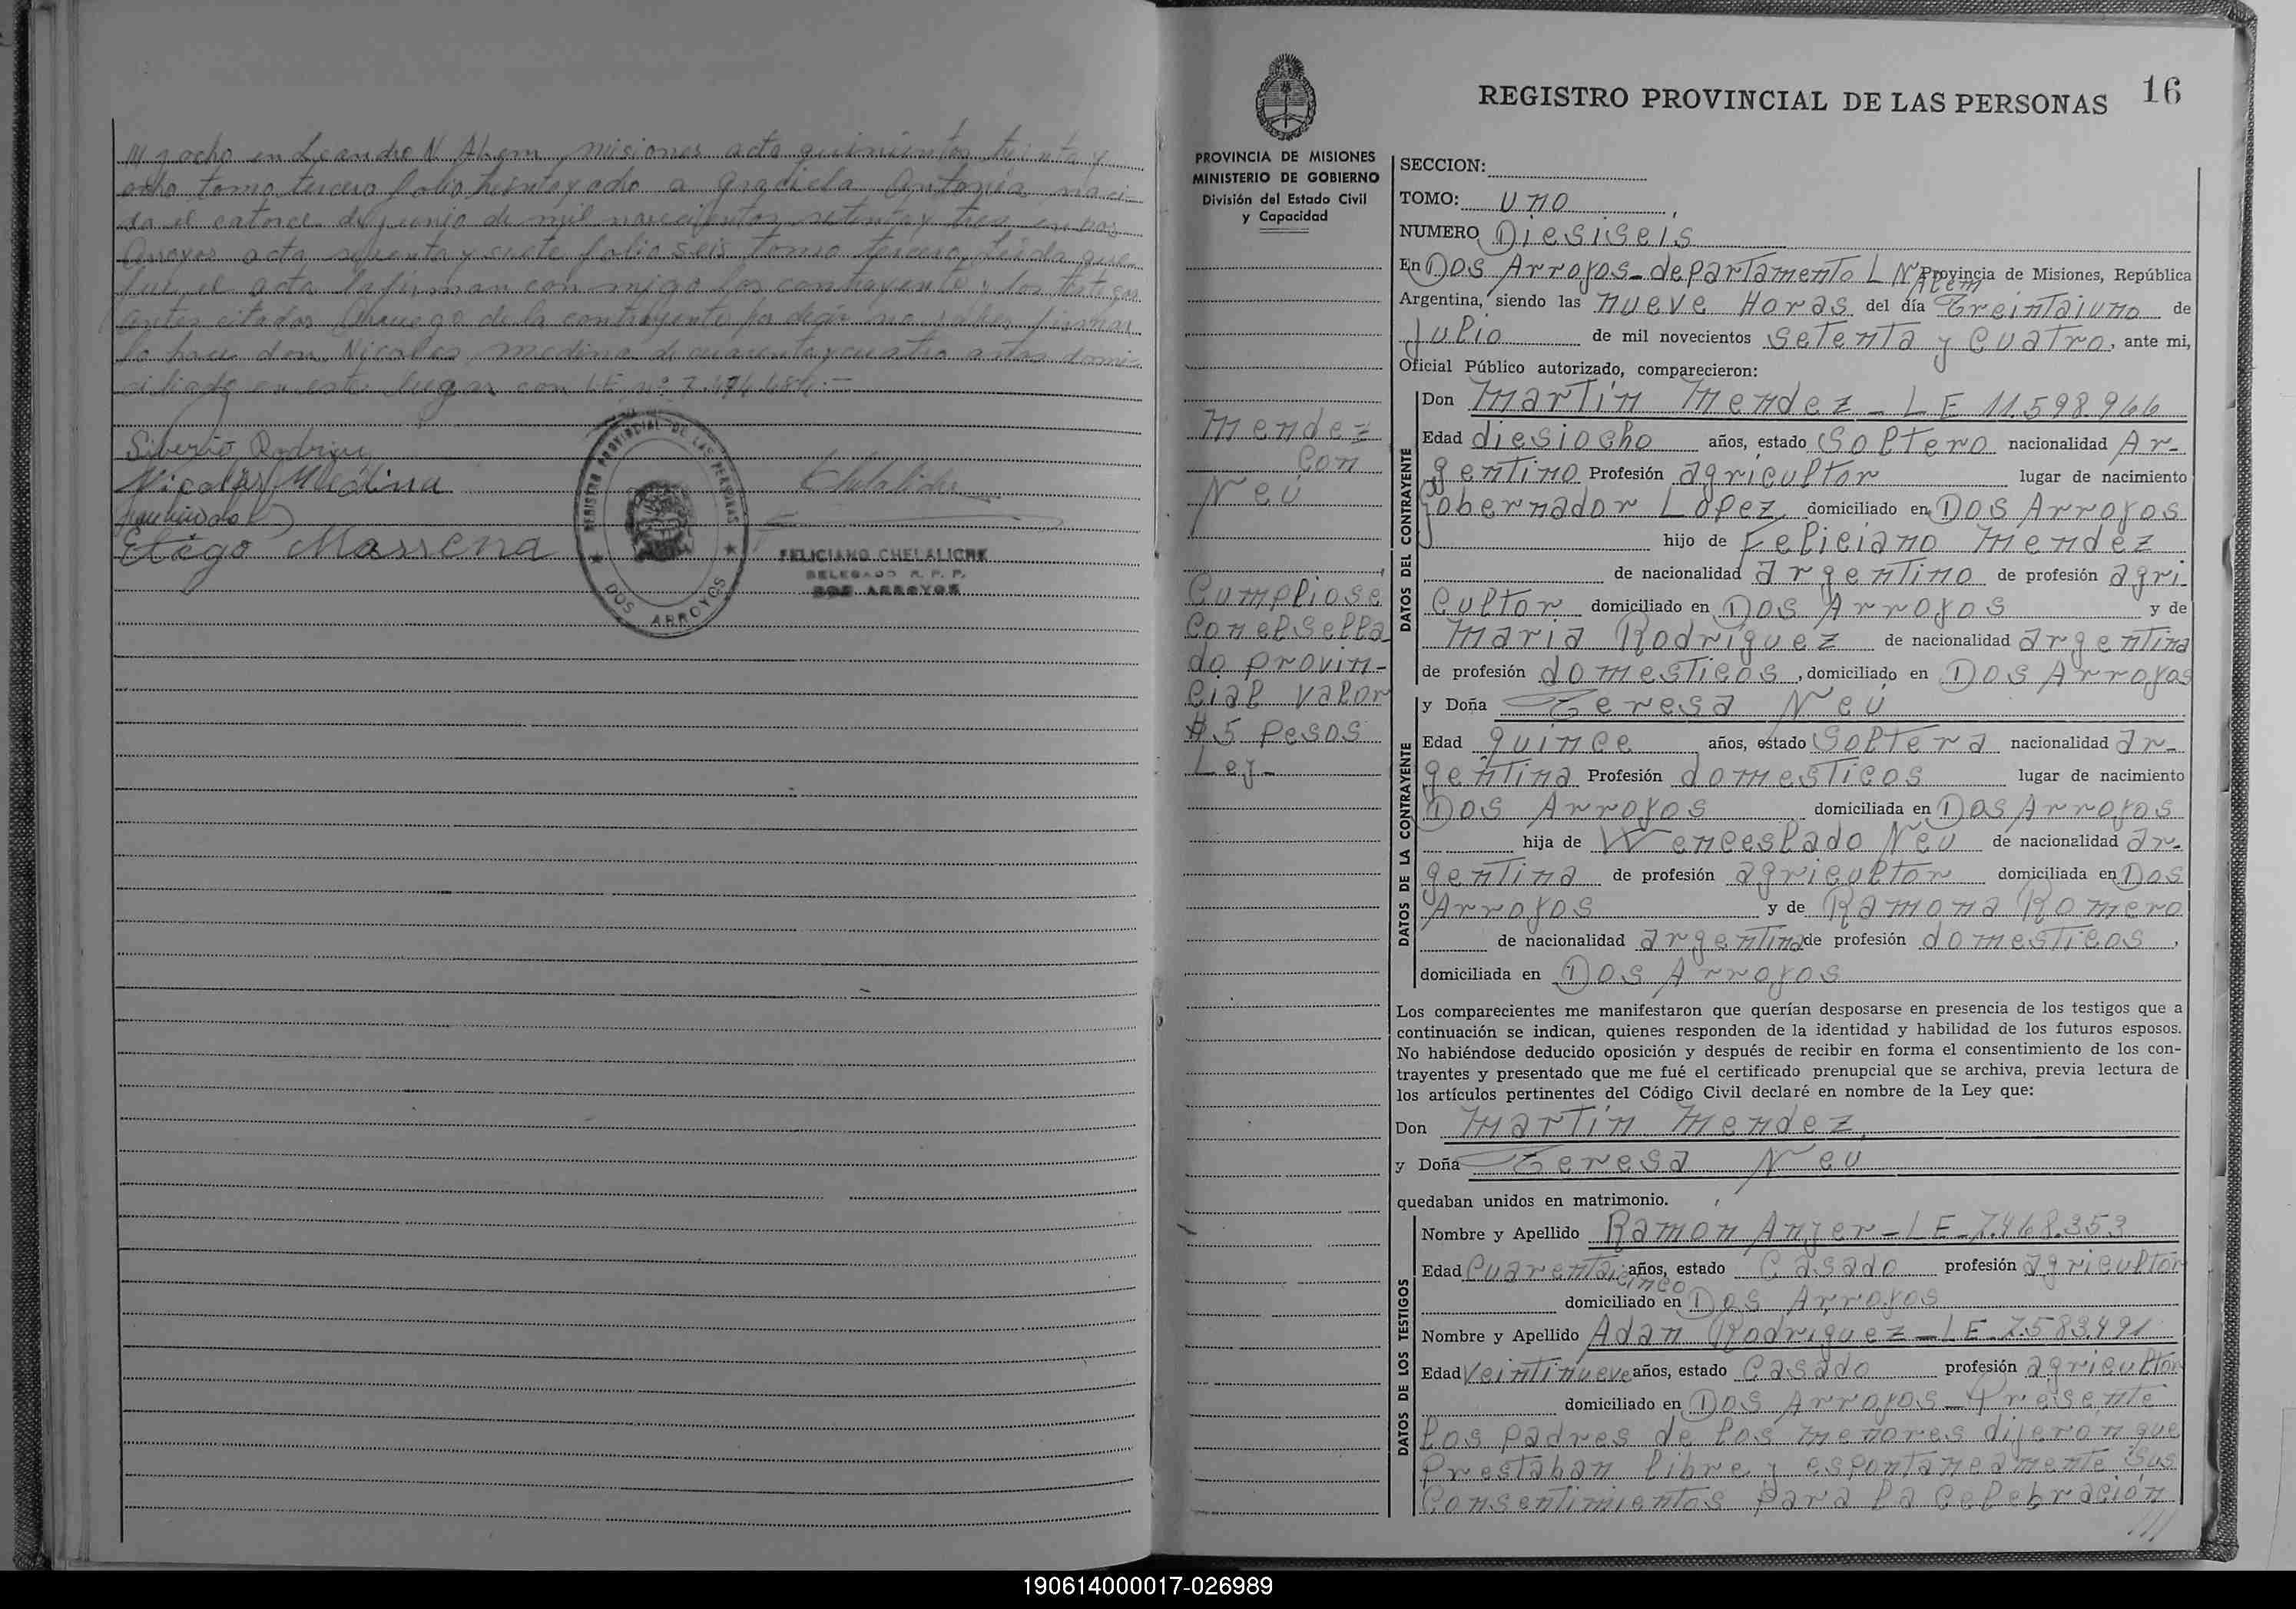 /// y ocho en Leandro N Alem misiones acta quinientos treinta y
ocho tomo tercero folio treinta y ocho a graciela Antonia naci-
da el catorce de junio de mil novecientos setenta y tres en Dos
Arroyos acta setenta y siete folio seis tomo tercero, Leida que
fue el acta la firman con migo los contrayentes y los testigos
antes citados A ruego de la contrayente por decir no saber firmar
lo hace don Nicolas medina de cuarenta y cuatro años domi-
ciliado en este lugar con LE nº 7.474.684.-
Siberio Rodrigue
Nicolas Medina
Eligo Massena
REGISTRO PROVINCIAL DE LAS PERSONAS
DOS ARROYOS
FELICIANO CHELALICHE
DELEGADO R. P. P.
DOS ARROYOS
16
REGISTRO PROVINCIAL DE LAS PERSONAS
PROVINCIA DE MISIONES
MINISTERIO DE GOBIERNO
División del Estado Civil
y Capacidad
Mendez
con
Neú
Cumpliose
con el sella
do provin-
cial valor
$ 5 pesos
Ley-
SECCION:
TOMO: uno
NUMERO Diesiseis
En Dos Arroyos-departamento L N Alem Provincia de Misiones, República
Argentina, siendo las nueve Horas del día Treintaiuno de
Julio de mil novecientos setenta y cuatro, ante mi,
Oficial Público autorizado, comparecieron:
DATOS DEL CONTRAYENTE
Don Martín Mendez - LE 11.598.966
Edad diesiocho años, estado Soltero nacionalidad Ar-
gentino Profesión agricultor lugar de nacimiento
Gobernador López domiciliado en Dos Arroyos
hijo de Feliciano Mendez
de nacionalidad argentino de profesión agri-
cultor domiciliado en Dos Arroyos y de
Maria Rodríguez de nacionalidad argentina
de profesión domesticos, domiciliado en Dos Arroyos
DATOS DE LA CONTRAYENTE
y Doña Teresa Neú
Edad quince años, estado Soltera nacionalidad ar-
gentina Profesión domesticos lugar de nacimiento
Dos Arroyos domiciliada en Dos Arroyos
hija de Wenceslado Neú de nacionalidad ar-
gentina de profesión agricultor domiciliada en Dos
Arroyos y de Ramona Romero
de nacionalidad argentina de profesión domesticos,
domiciliada en Dos Arroyos
Los comparecientes me manifestaron que querían desposarse en presencia de los testigos que a
continuación se indican, quienes responden de la identidad y habilidad de los futuros esposos.
No habiéndose deducido oposición y después de recibir en forma el consentimiento de los con-
trayentes y presentado que me fué el certificado prenupcial que se archiva, previa lectura de
los artículos pertinentes del Código Civil declaré en nombre de la Ley que:
Don Martín Mendez
y Doña Teresa Neu
quedaban unidos en matrimonio.
DATOS DE LOS TESTIGOS
Nombre y Apellido Ramon Anjer-LE-7.468.353
Edad Cuarentaicinco años, estado Casado profesión agricultor
domiciliado en Dos Arroyos
Nombre y Apellido Adan Rodriguez-LE.7.583.491
Edad Veintinueve años, estado Casado profesión agricultor
domiciliado en Dos Arroyos-Presente
los padres de los menores dijeron que
prestaban libre y espontaneamente sus
Consentimientos para la celebración
///
190614000017-026989